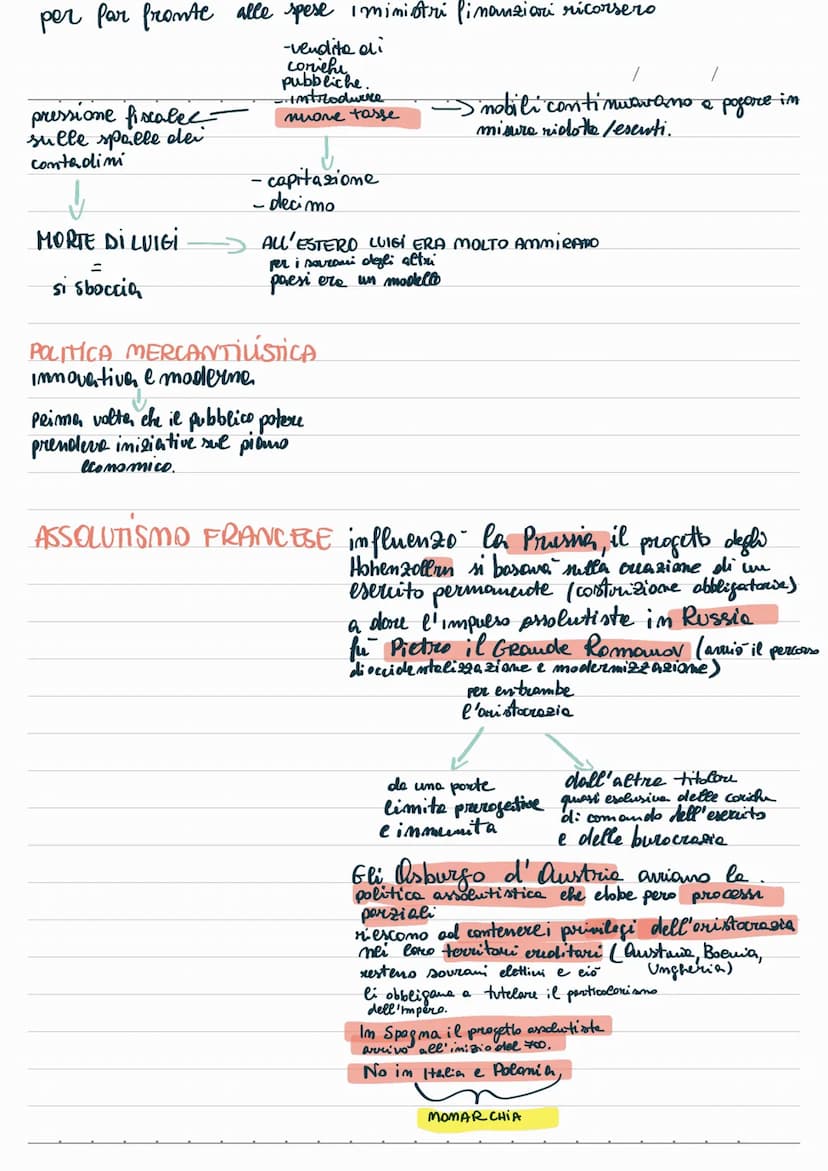 per far fronte alle spese i ministri finanziari ricorsero
-vendita di
cariche
pubbliche.
- introdurre
nuove tasse
nobili continuavano a pagare in
misura ridotta /esenti.
pressione fiscale
sulle spalle dei
contadini
- capitazione
- decimo
MORTE DI LUIGI
=
si sboccia
ALL'ESTERO LUIGI ERA MOLTO AMMIRATO
per i sovrani degli altri
paesi era un modello
POLITICA MERCANTILISTICA
innovativa e moderna
Prima volta che il pubblico potere
prendeva iniziative sul piano
economico.
ASSOLUTISMO FRANCESE
influenzo' la Prussia, il progetto degli
Hohenzollern si basava sulla creazione di un
esercito permanente (costorizione obbligatoria)
a dare l'impulso assolutista in Russia
fu Pietro il Grande Romanov (avviò il percorso
di occidentalizzazione e modernizzazione)
per entrambe
l'aristocrazia
da una parte
limita prerogative
e immunità
dall'altra titolare
quasi esclusiva delle cariche
di comando dell'esercito
e della burocrazia
Gli Asburgo d'Austria avviano la
politica assolutistica che ebbe però processi
parziali
riescono ad contenere i privilegi dell'aristocrazia
nei loro territori ereditari (Austria, Boemia,
Ungheria)
restano sovrani elettivi e ciò
li obbligava a tutelare il particolarismo
dell'Impero.
In Spagna il progetto assolutista
arrivò all'inizio del 700.
No in Italia e Polonia,
MONARCHIA